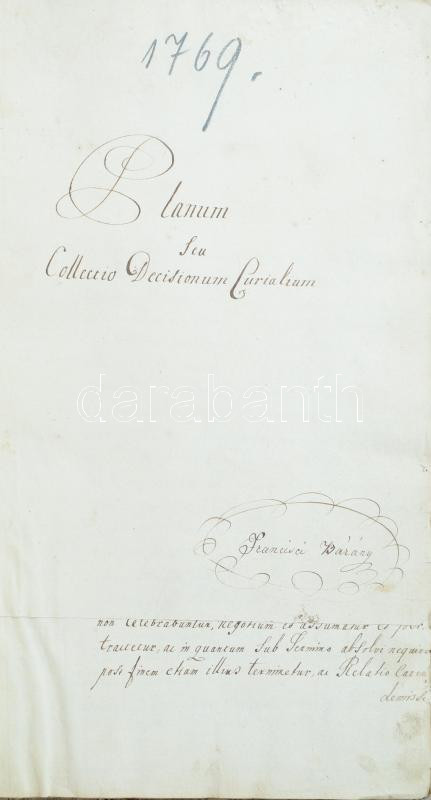 1769.
Planum
seu
Collectio Decisionum Curialium
darabanth
Francisci Bárány
non celebrabuntur, negotium eo assumatur et per
tractetur, ac in quantum sub Termino absolvi nequi
post finem etiam illius terminetur, ac Relatio
demissi